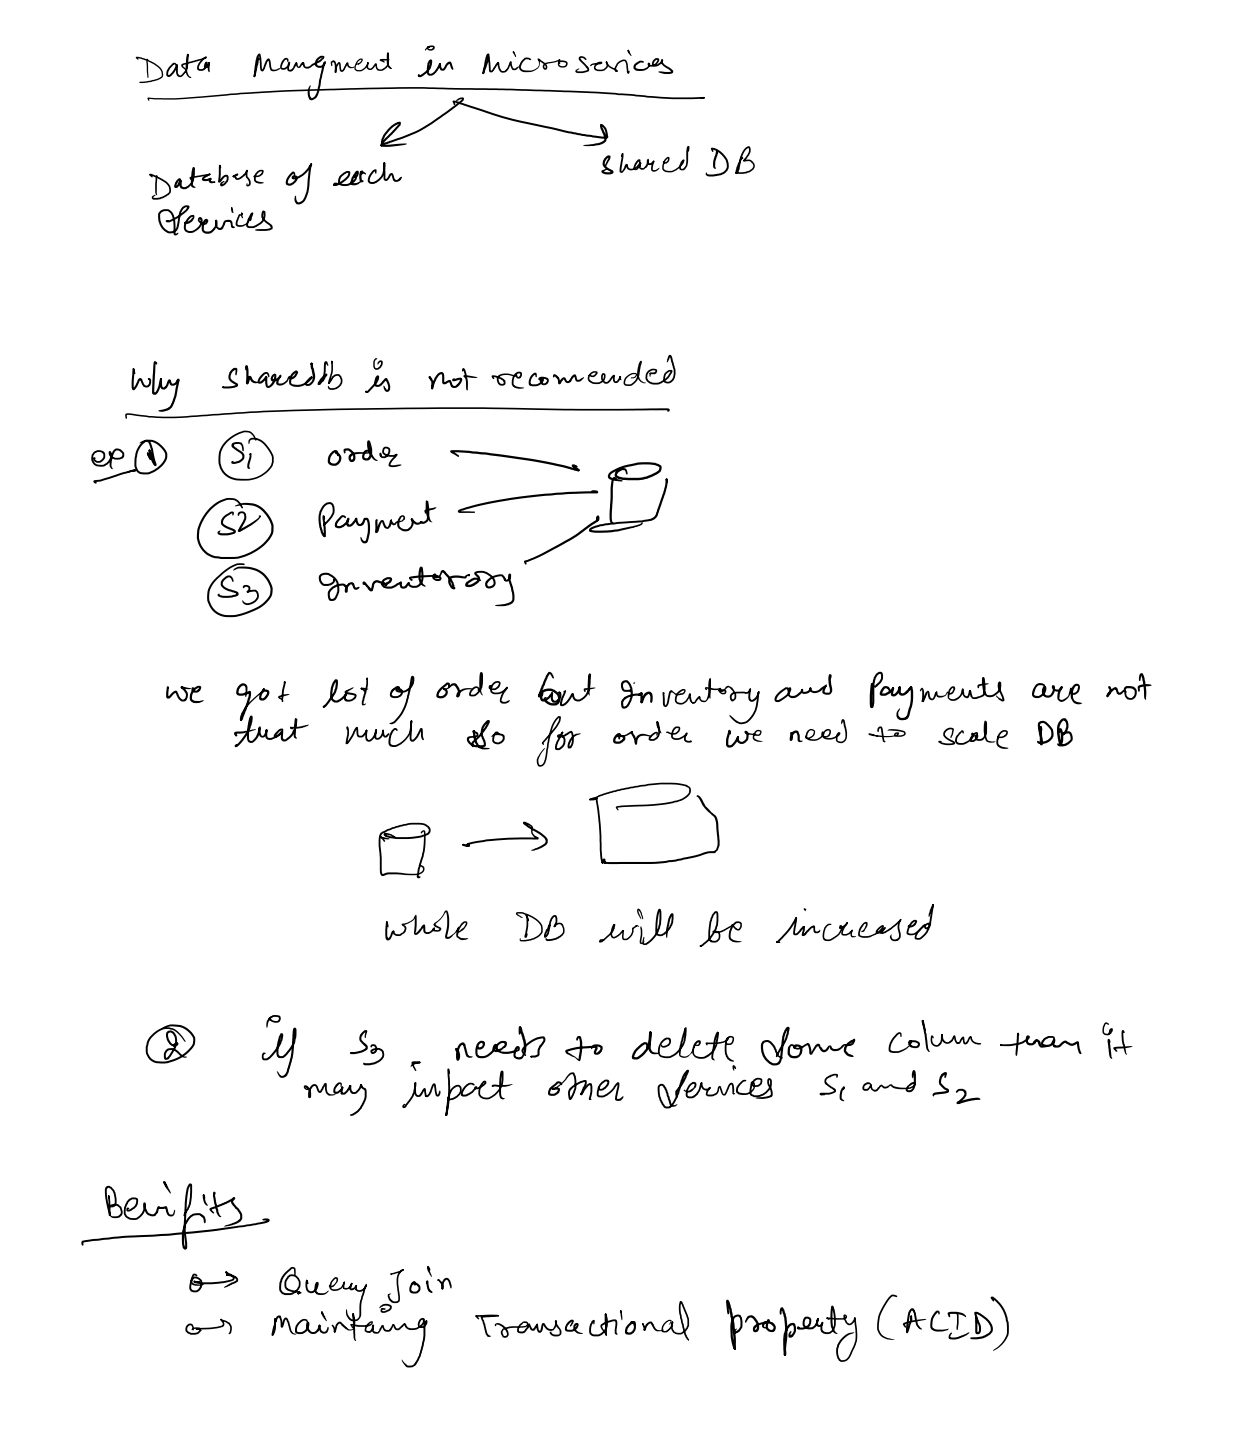 Data Mangment in Microservices
Database of each
services
shared DB
Why shareddb is not recomended
ex ①
S1 order
S2 Payment
S3 Inventorory
we got lot of order but Inventory and Payments are not
that much so for order we need to scale DB
whole DB will be increased
② if S3 needs to delete some colum than it
may inpact other services S1 and S2
Benifits
→ Query Join
→ Maintaing Transactional property (ACID)